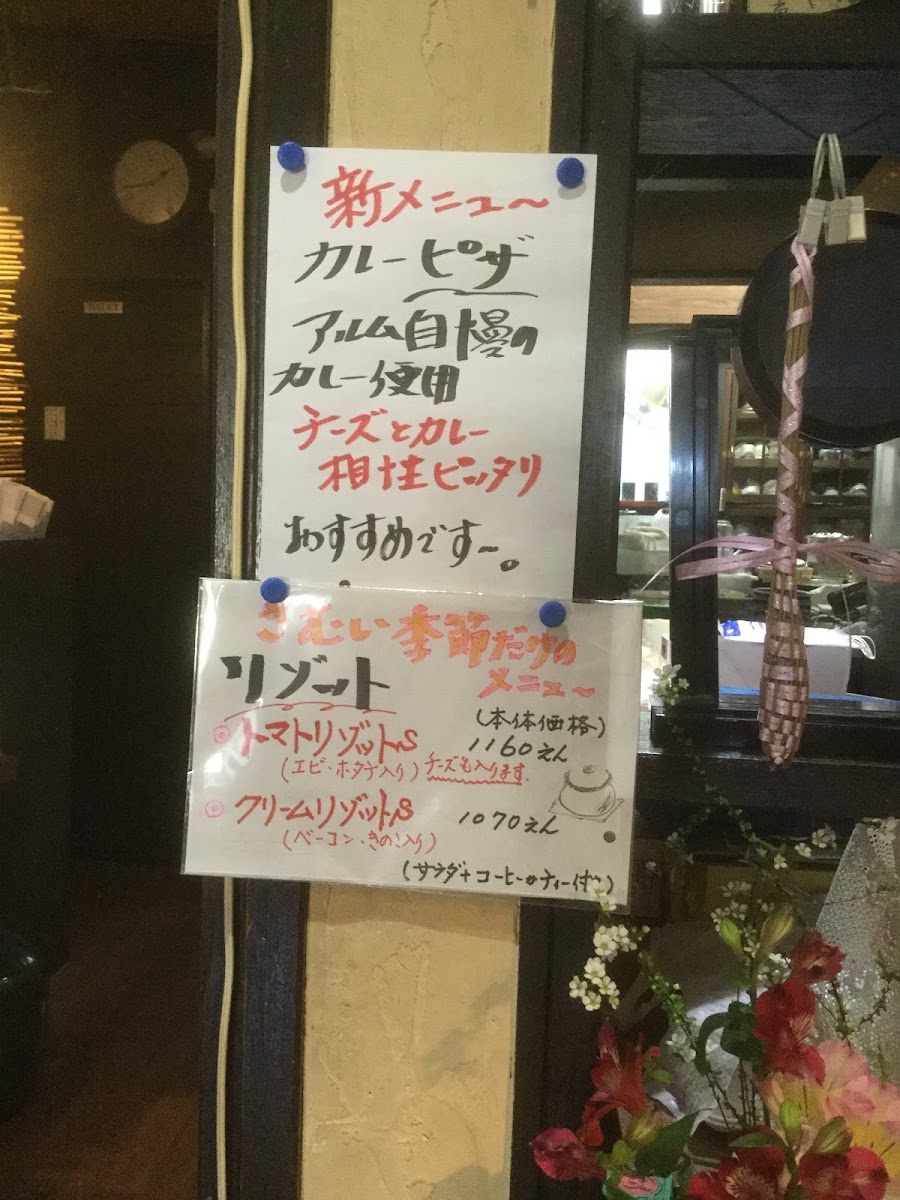 新メニュー〜
カレーピザ
アルム自慢の
カレー使用
チーズとカレー
相性ピッタリ
おすすめです〜。
さむい季節だけの
メニュー〜
リゾット
(本体価格)
◎トマトリゾットS 1160えん
(エビ・ホタテ入り) チーズも入ります.
◎クリームリゾットS 1070えん
(ベーコン・きのこ入り)
(サラダ+コーヒーorティー付)
TOILET